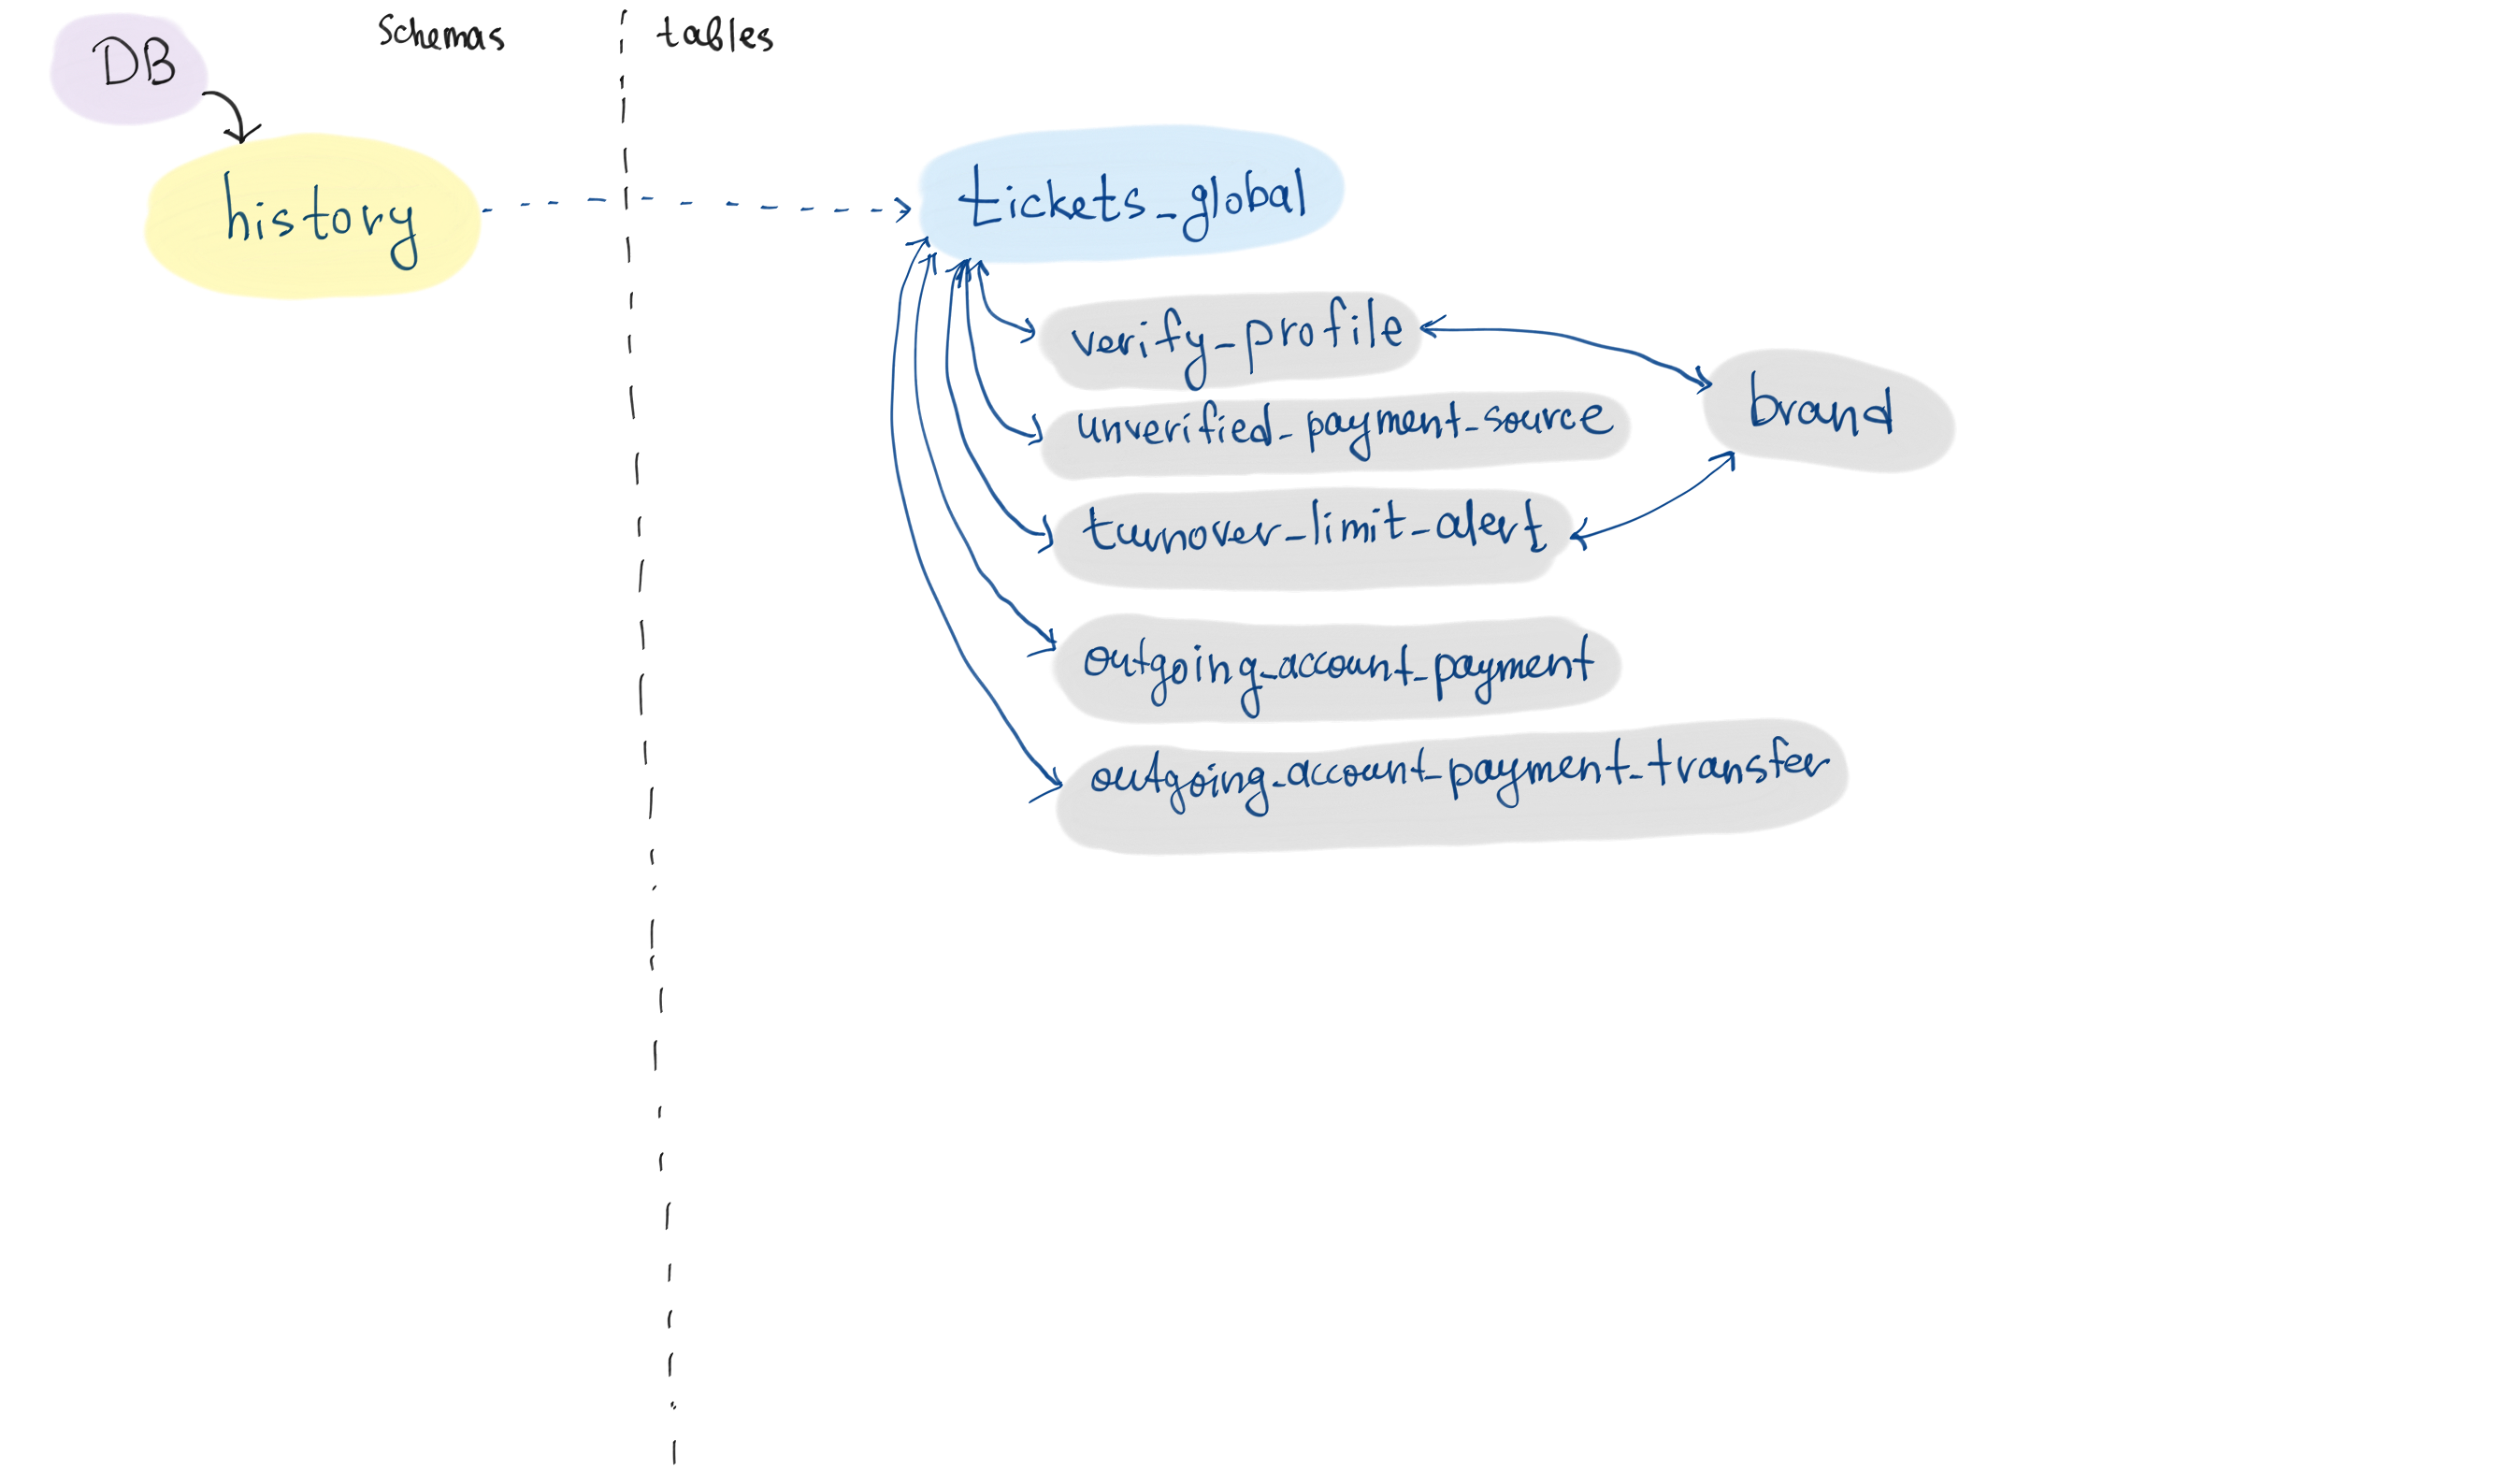 DB
schemas
tables
history
tickets_global
verify_profile
brand
unverified_payment_source
turnover_limit_alert
outgoing_account_payment
outgoing_account_payment_transfer